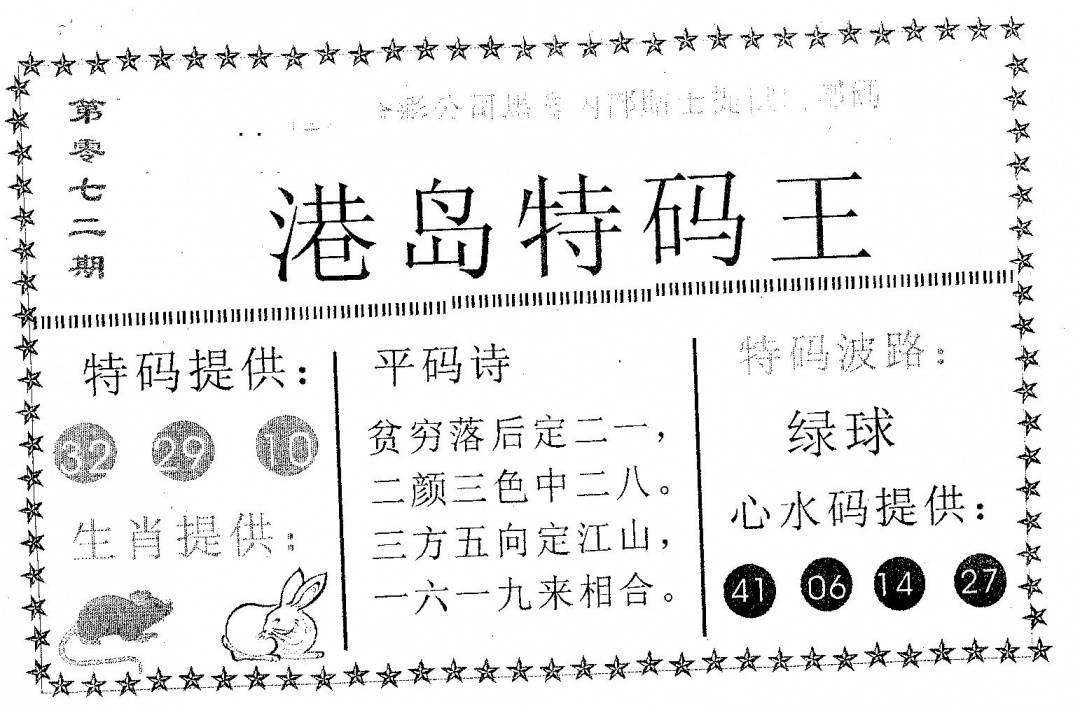 第零七二期
港岛特码王
特码提供：
32 29 10
生肖提供：
平码诗
贫穷落后定二一，
二颜三色中二八。
三方五向定江山，
一六一九来相合。
特码波路：
绿球
心水码提供：
41 06 14 27